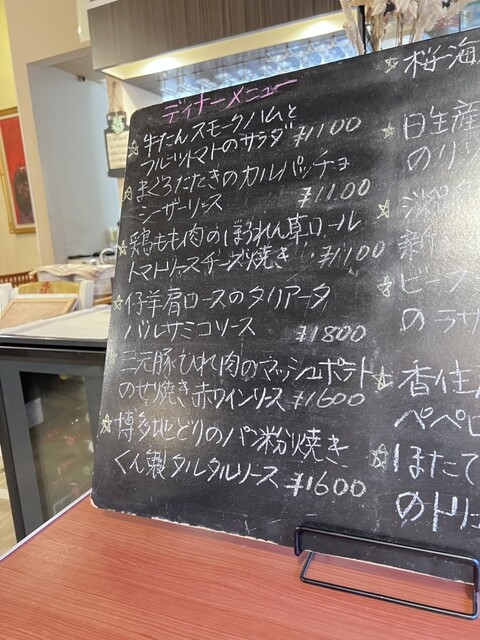 ディナーメニュー
☆牛たんスモークハムと
フルーツトマトのサラダ ¥1100
☆まぐろたたきのカルパッチョ
シーザーソース ¥1100
☆鶏もも肉のほうれん草ロール
トマトソースチーズ焼き ¥1100
☆仔羊肩ロースのタリアータ
バルサミコソース ¥1800
☆三元豚ひれ肉のマッシュポテト
のせ焼き赤ワインソース ¥1600
☆博多地どりのパン粉焼き
くん製タルタルソース ¥1600
☆桜海
☆日生産
のリソ
☆淡
新
☆ビーフ
のラザ
☆香住
ペペロ
☆ほたて
のトリュ